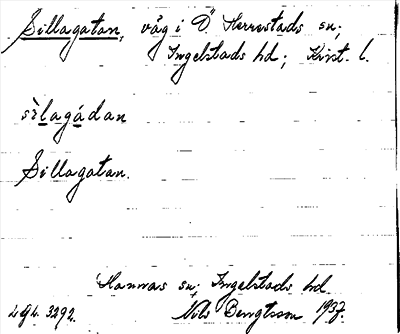 Sillagatan, väg i Ö. Herrestads sn;
Ingelstads hd; Krist. l.
sìlagádan
Sillagatan.
Hannas sn; Ingelstads hd.
Nils Bengtsson 1937.